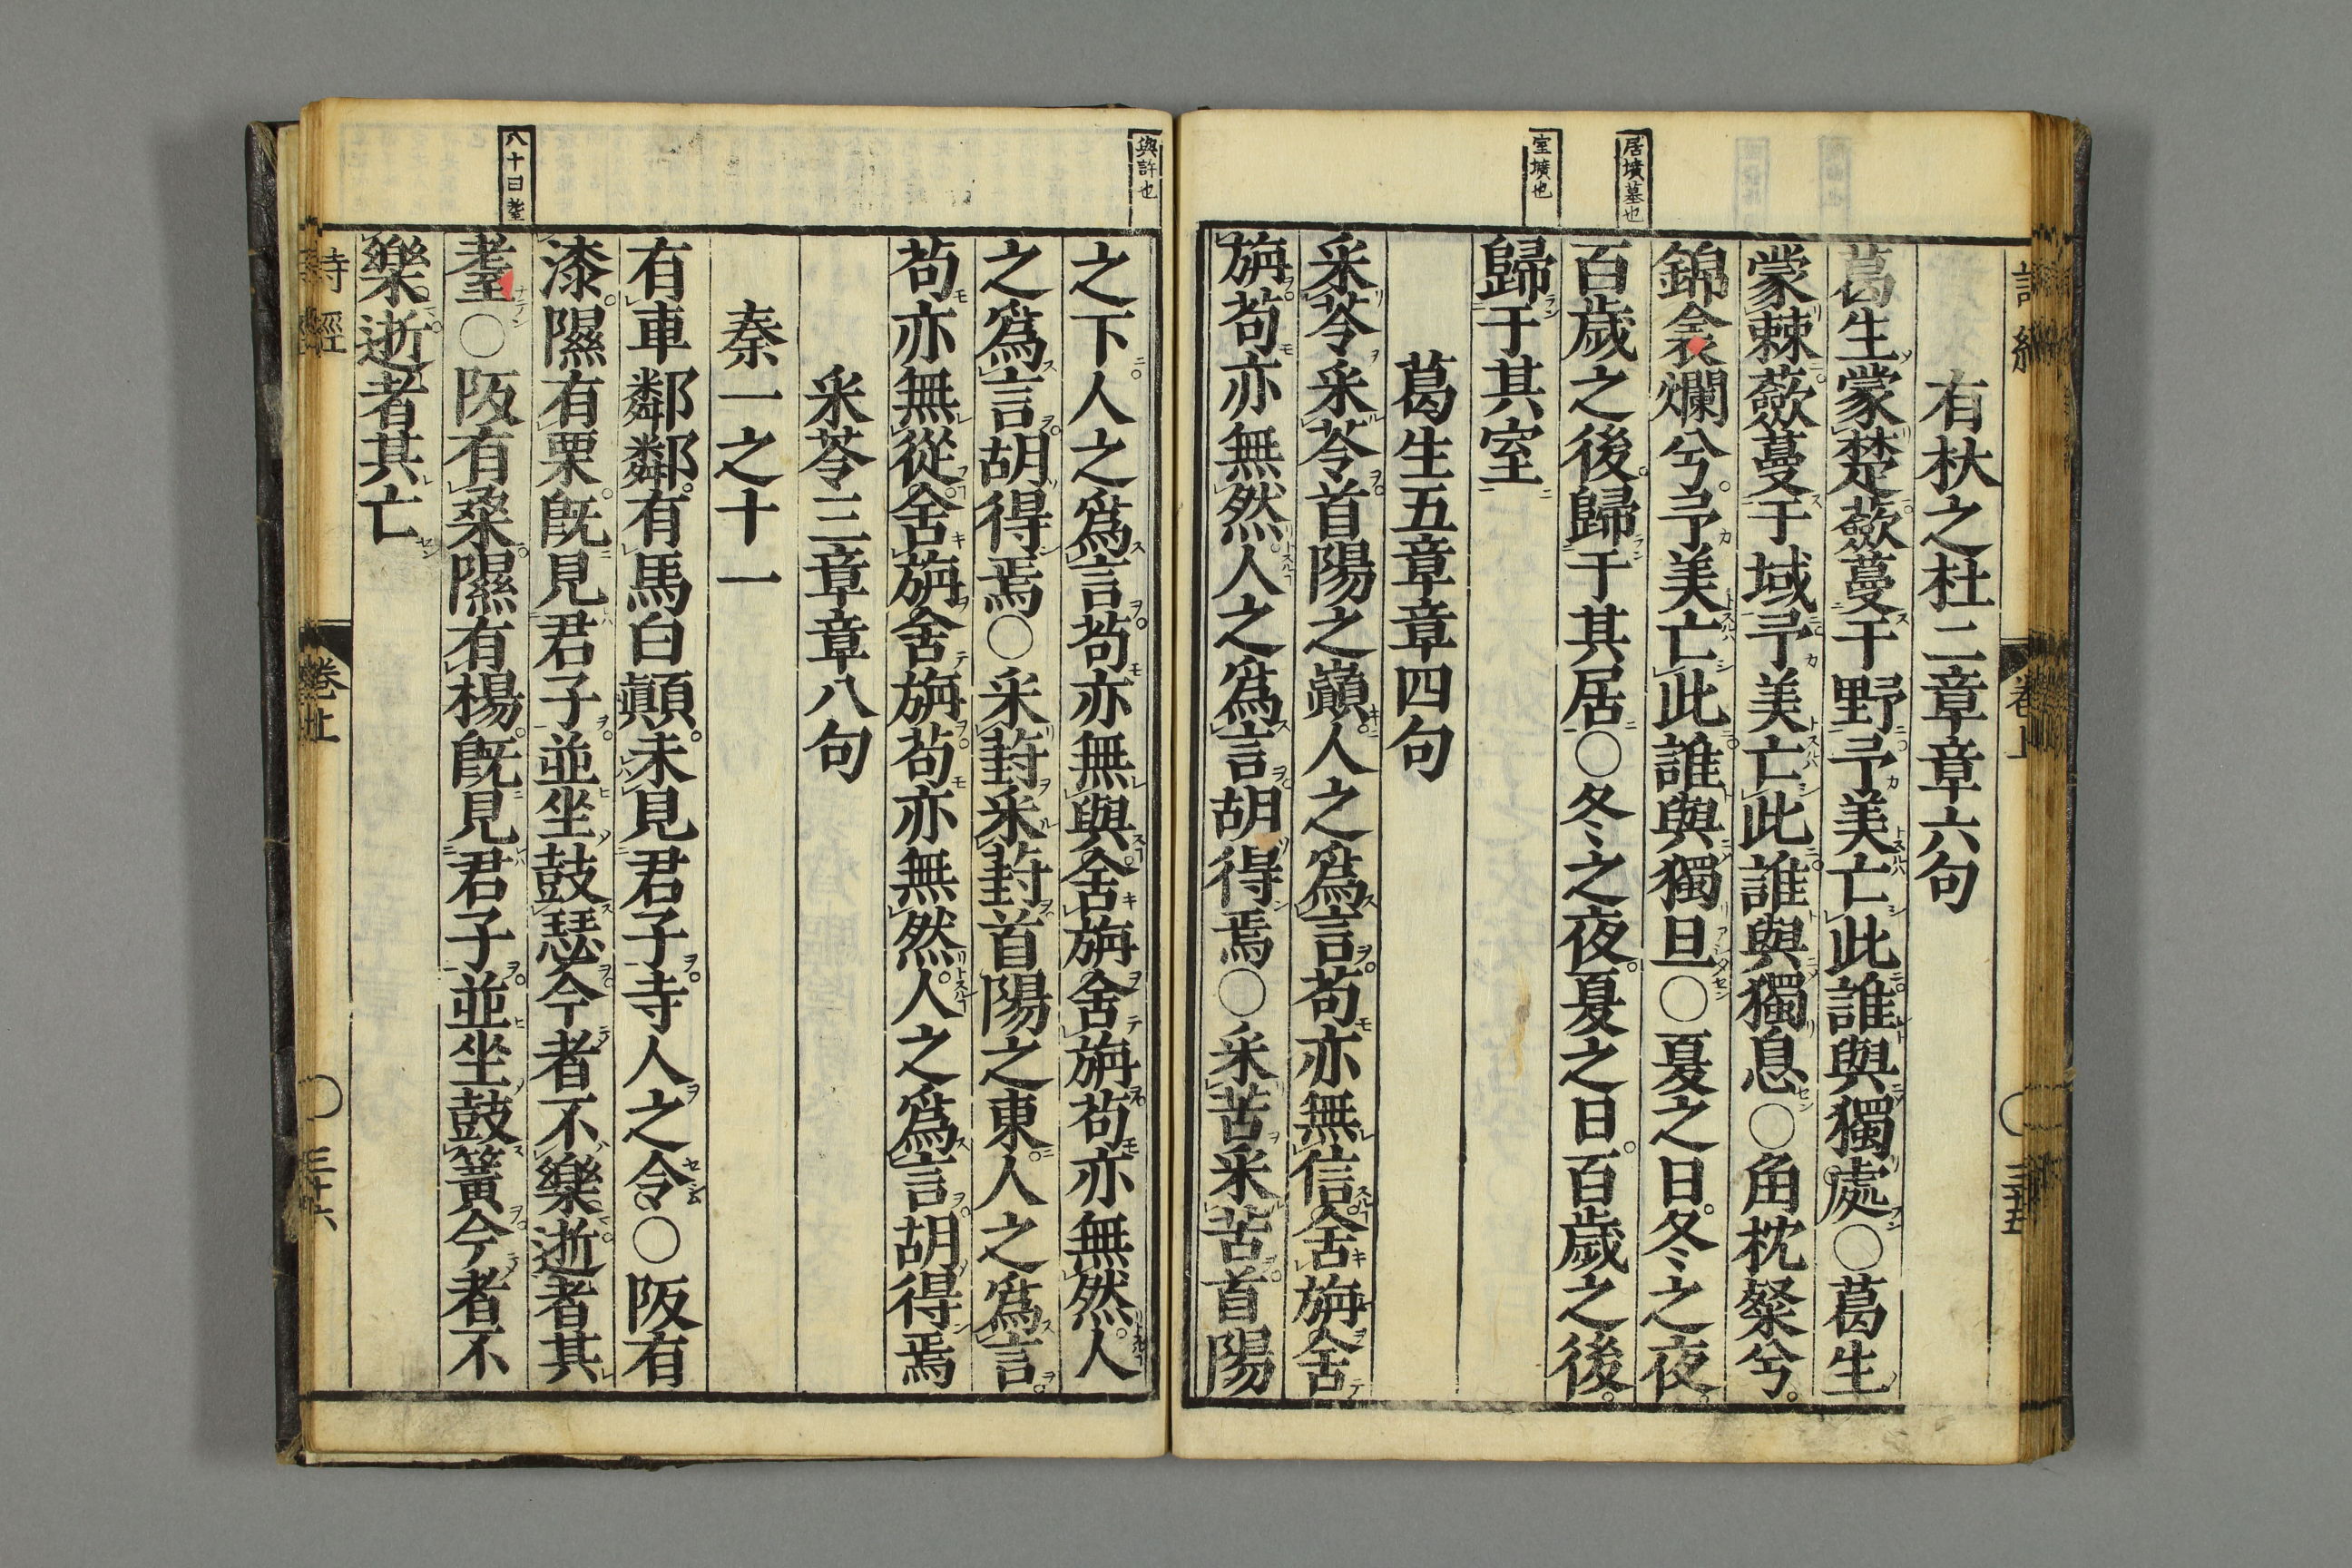 居墳墓也
室壙也
有杕之杜二章章六句
葛生蒙楚蘞蔓于野予美亡此誰與獨處○葛生
蒙棘蘞蔓于域予美亡此誰與獨息○角枕粲兮
錦衾爛兮予美亡此誰與獨旦○夏之日冬之夜
百歲之後歸于其居○冬之夜夏之日百歲之後
歸于其室
葛生五章章四句
采苓采苓首陽之巔人之爲言苟亦無信舍旃舍
旃苟亦無然人之爲言胡得焉○采苦采苦首陽
與許也
八十曰耋
之下人之爲言苟亦無與舍旃舍旃苟亦無然人
之爲言胡得焉○采葑采葑首陽之東人之爲言
苟亦無從舍旃舍旃苟亦無然人之爲言胡得焉
采苓三章章八句
秦一之十一
有車鄰鄰有馬白顛未見君子寺人之令○阪有
漆隰有栗旣見君子並坐鼓瑟今者不樂逝者其
耋○阪有桑隰有楊旣見君子並坐鼓簧今者不
樂逝者其亡
詩經 卷上 三十六